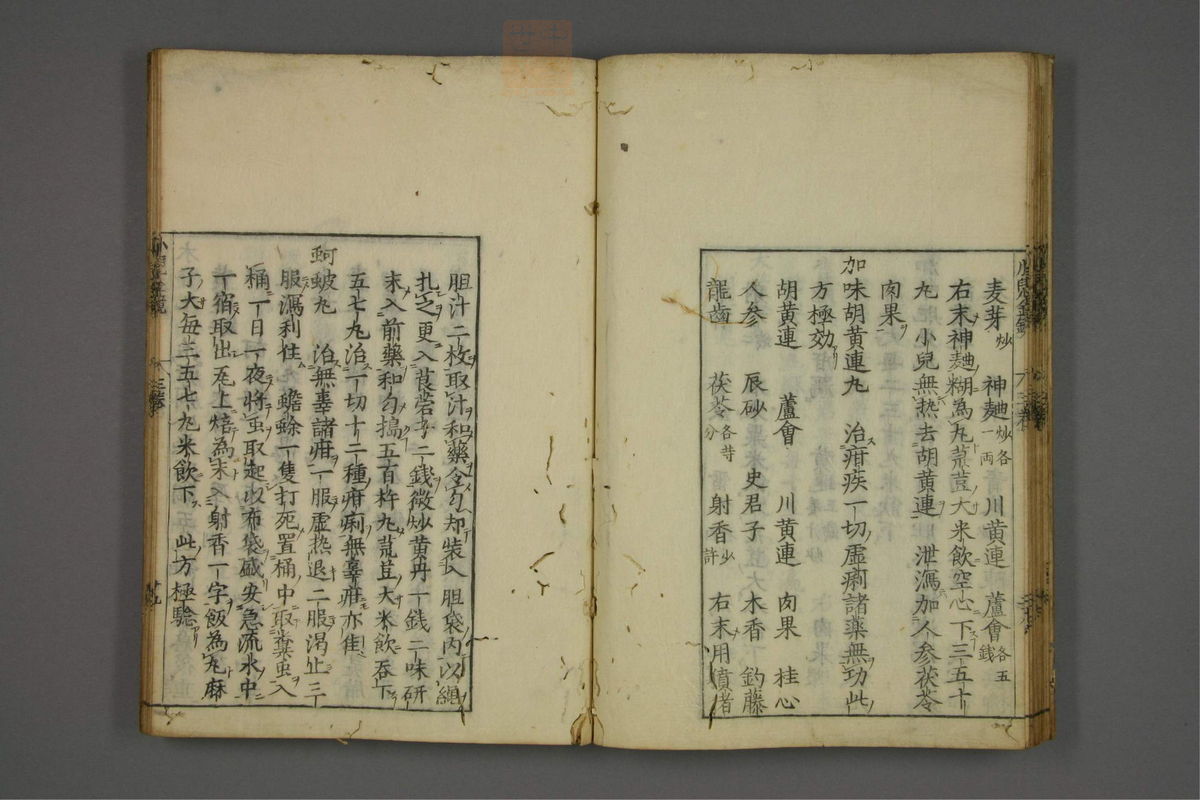 麦芽炒 神麯炒各一両 川黄連 蘆會各五銭
右末神麯糊為丸菉荳大米飲空心下三五十
丸小兒無热去胡黄連泄瀉加人参茯苓
肉果
加味胡黄連丸 治疳疾一切虚痢諸藥無功此
方極効
胡黄連 蘆會 川黄連 肉果 桂心
人参 辰砂 史君子 木香 釣藤
龍齒 茯苓各等分 射香少許 右末用㹠猪
胆汁二枚取汁和藥令匀却装入胆袋内以綿
扎定更入莨菪子二銭微炒黄丹一銭二味研
末入前藥和匀搗五百杵丸菉荳大米飲呑下
五七丸治一切十二種疳痢無辜疳亦佳
蚵蚾丸 治無辜諸疳一服虚热退二服渴止三
服瀉利住蟾蜍一隻打死置桶中取糞虫入
桶一日一夜將虫取起以布袋盛安急流水中
一宿取出瓦上焙為末入射香一字飯為丸麻
子大每三五七丸米飲下此方極驗